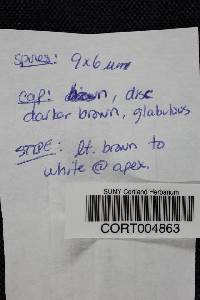 spores: 9x6 µm
cap: brown, disc
darker brown, glabrous
STIPE: lt. brown to
white @ apex.
SUNY Cortland Herbarium
CORT004863